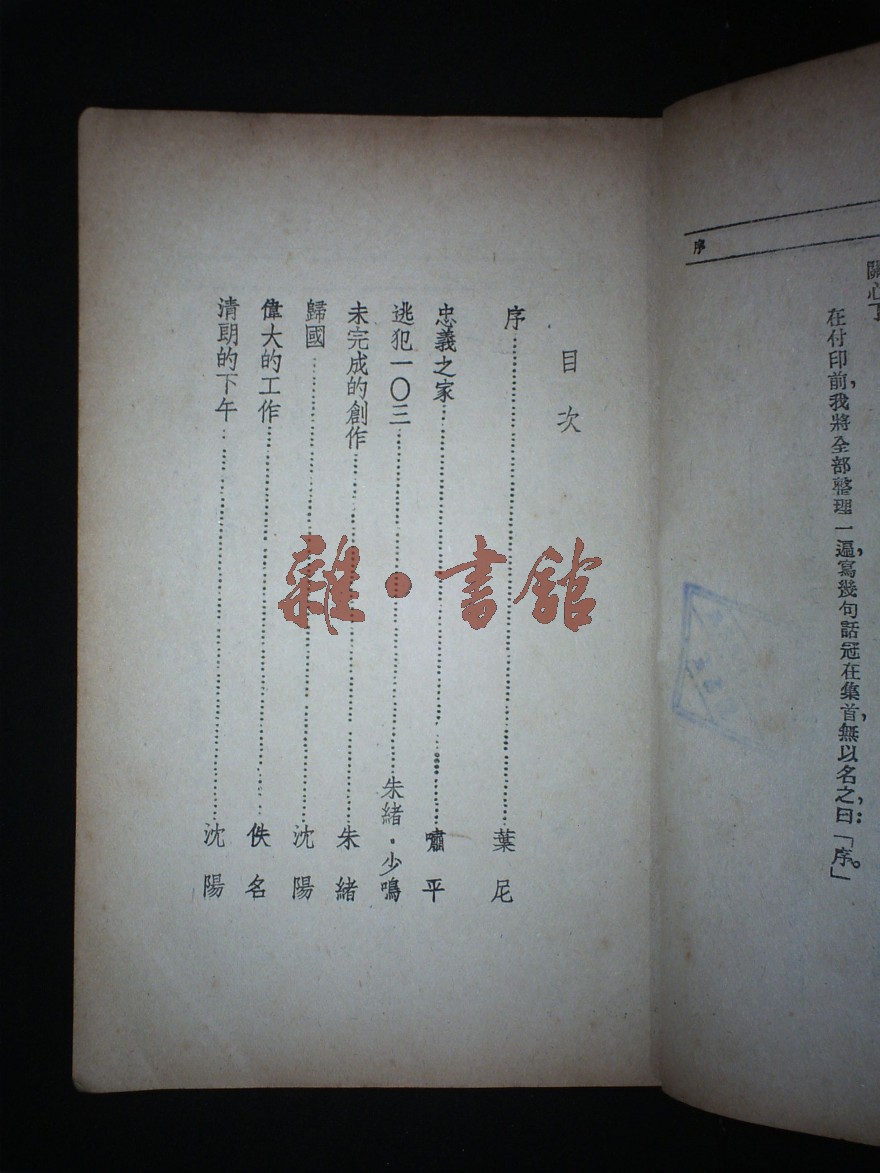 序
關心了
在付印前，我將全部整理一遍，寫幾句話冠在集首，無以名之，曰：「序。」
目次
序……葉尼
忠義之家……嘯平
逃犯一〇三……朱緒·少鳴
未完成的創作……朱緒
歸國……沈陽
偉大的工作……佚名
清朗的下午……沈陽
雜·書館